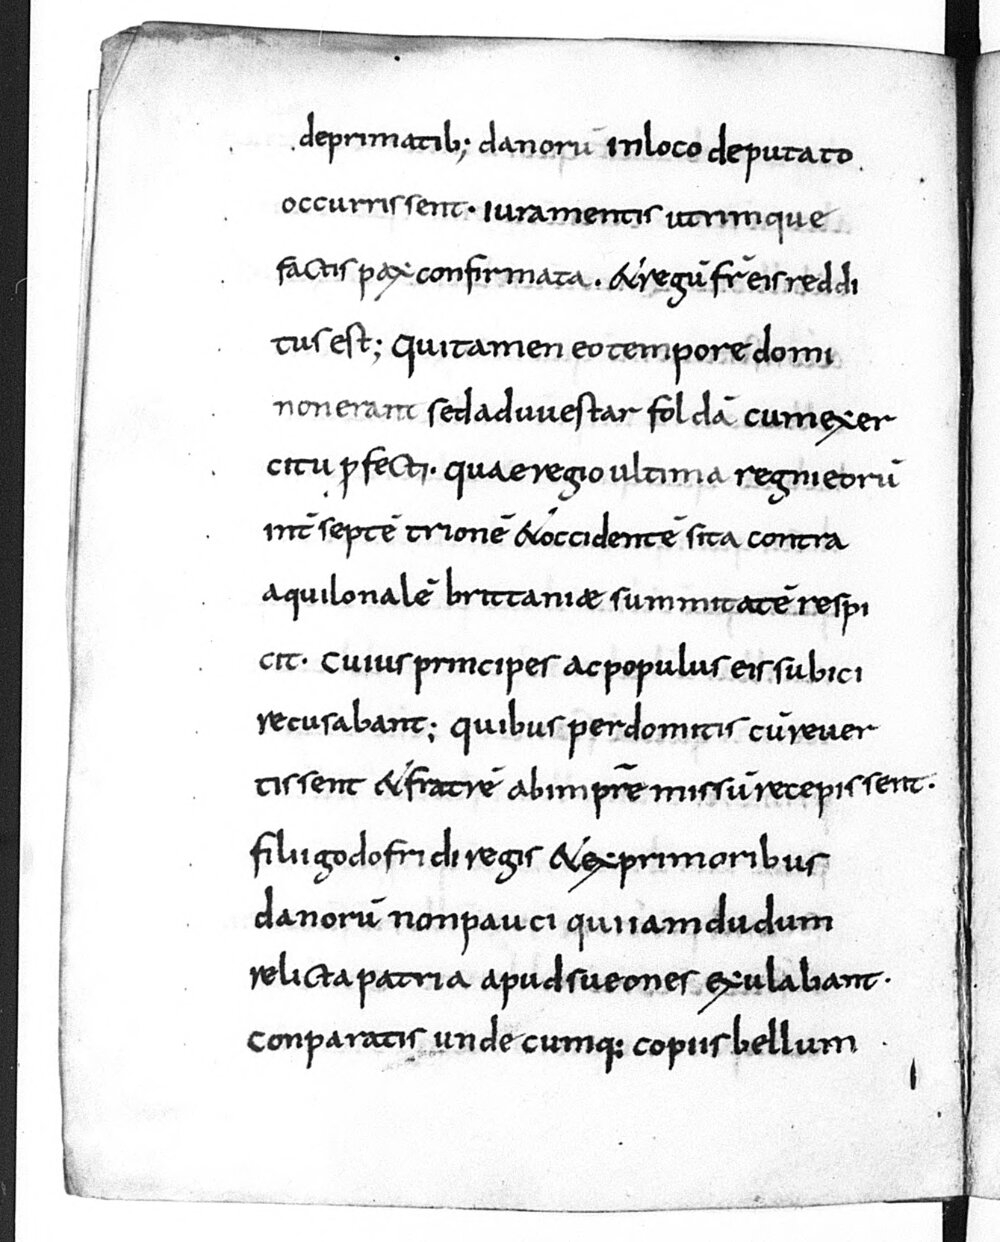 deprimatib; danorū inloco deputato
occurrissent· iuramentis utrimque
factis pax confirmata . & regū fr̄ eis reddi
tus est; qui tamen eo tempore domi
non erant sed aduuestar foldā cum exer
citu pfecti· quae regio ultima regni eorū
int̄ septē trionē & occidentē sita contra
aquilonalē brittaniæ summitatē respi
cit· cuius principes ac populus eis subici
recusabant; quibus perdomitis cū reuer
tissent & fratrē ab imp̄re missū recepissent·
filii godofridi regis & ex primoribus
danorū non pauci qui iam dudum
relicta patria apud sueones exulabant·
conparatis undecumq; copiis bellum